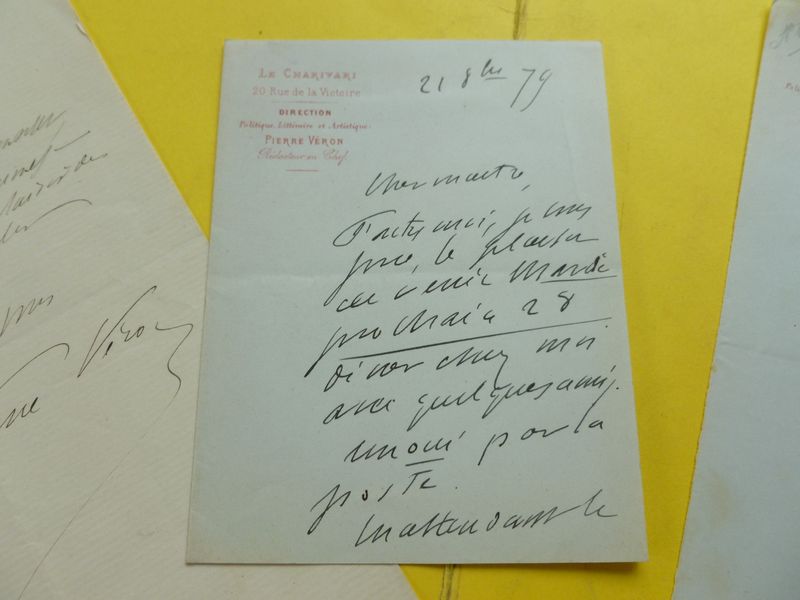 LE CHARIVARI
20 Rue de la Victoire
DIRECTION
Politique, Littéraire et Artistique
PIERRE VÉRON
Rédacteur en Chef
21 8bre 79
Cher maître,
Faites moi, je vous
prie, le plaisir
de venir Mardi
prochain 28
dîner chez moi
avec quelques amis.
un oui par la
poste.
En attendant le
Véron